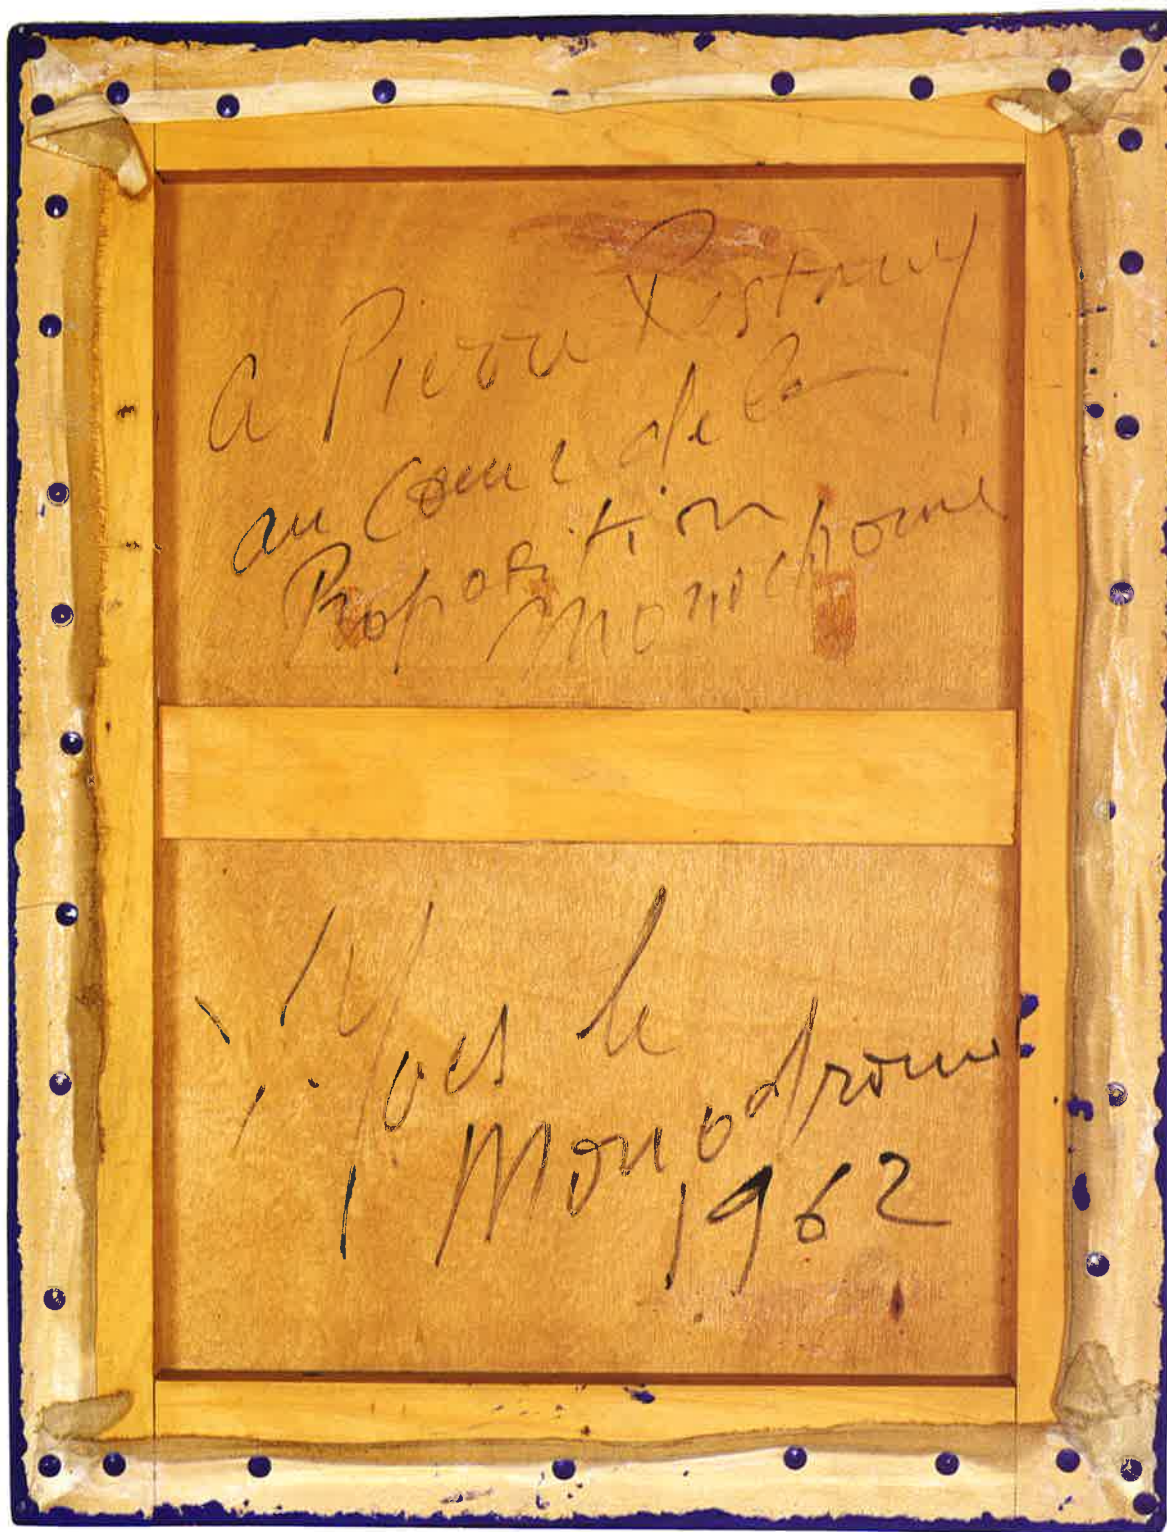 A Pierre Restany
au cœur de la
Proposition
monochrome
Yves le
Monochrome
1962